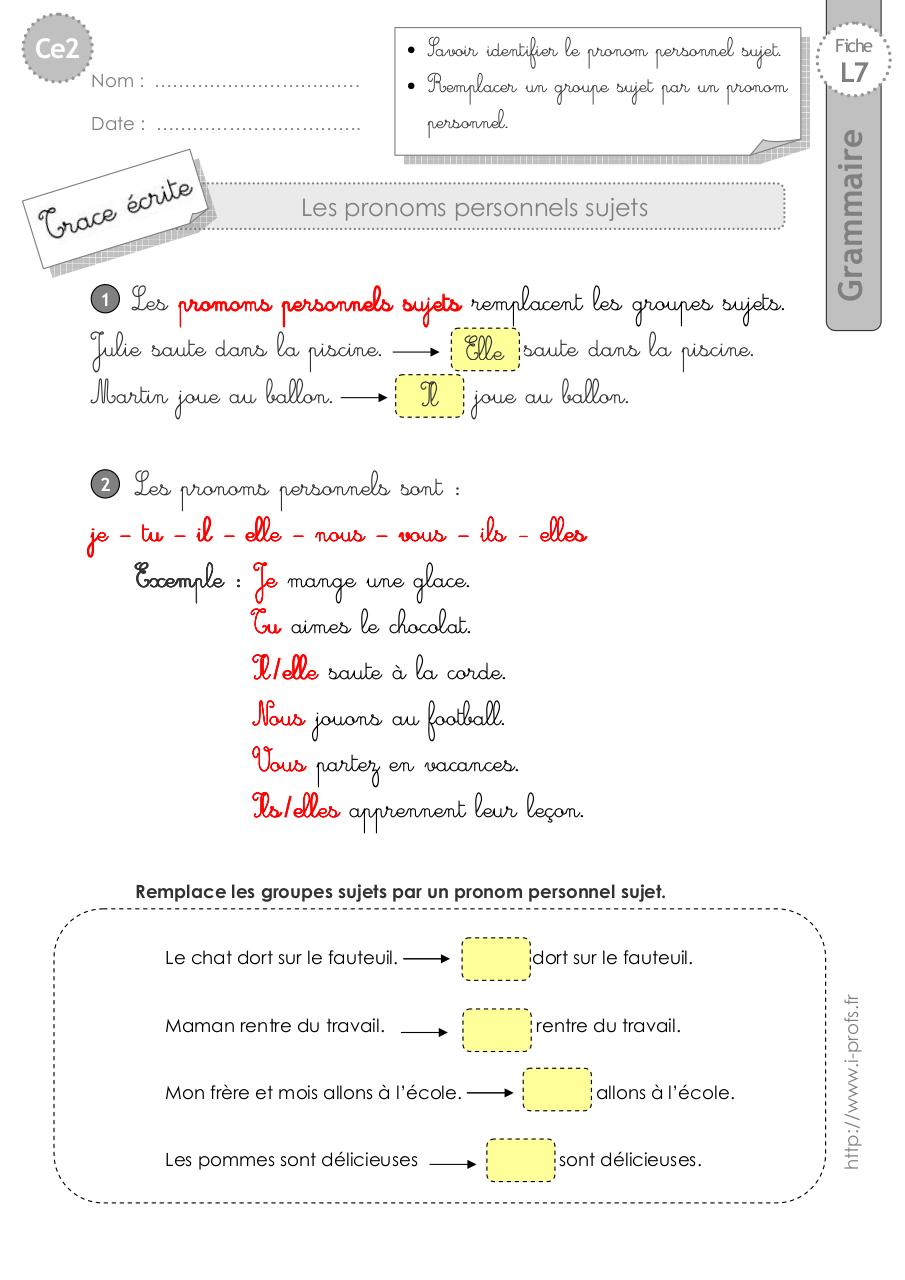 Ce2
Nom : ..................................
Date : ..................................
• Savoir identifier le pronom personnel sujet.
• Remplacer un groupe sujet par un pronom
personnel.
Fiche
L7
Grammaire
Trace écrite
Les pronoms personnels sujets
1 Les promoms personnels sujets remplacent les groupes sujets.
Julie saute dans la piscine. → Elle saute dans la piscine.
Martin joue au ballon. → Il joue au ballon.
2 Les pronoms personnels sont :
je – tu – il – elle – nous – vous – ils - elles
Exemple : Je mange une glace.
Tu aimes le chocolat.
Il/elle saute à la corde.
Nous jouons au football.
Vous partez en vacances.
Ils/elles apprennent leur leçon.
Remplace les groupes sujets par un pronom personnel sujet.
Le chat dort sur le fauteuil. → dort sur le fauteuil.
Maman rentre du travail. → rentre du travail.
Mon frère et mois allons à l'école. → allons à l'école.
Les pommes sont délicieuses → sont délicieuses.
http://www.i-profs.fr